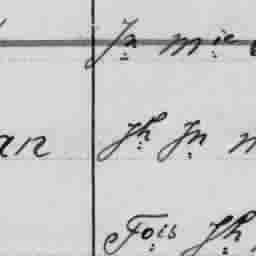 Jn mie
an Jh Jn m
Fois Jh